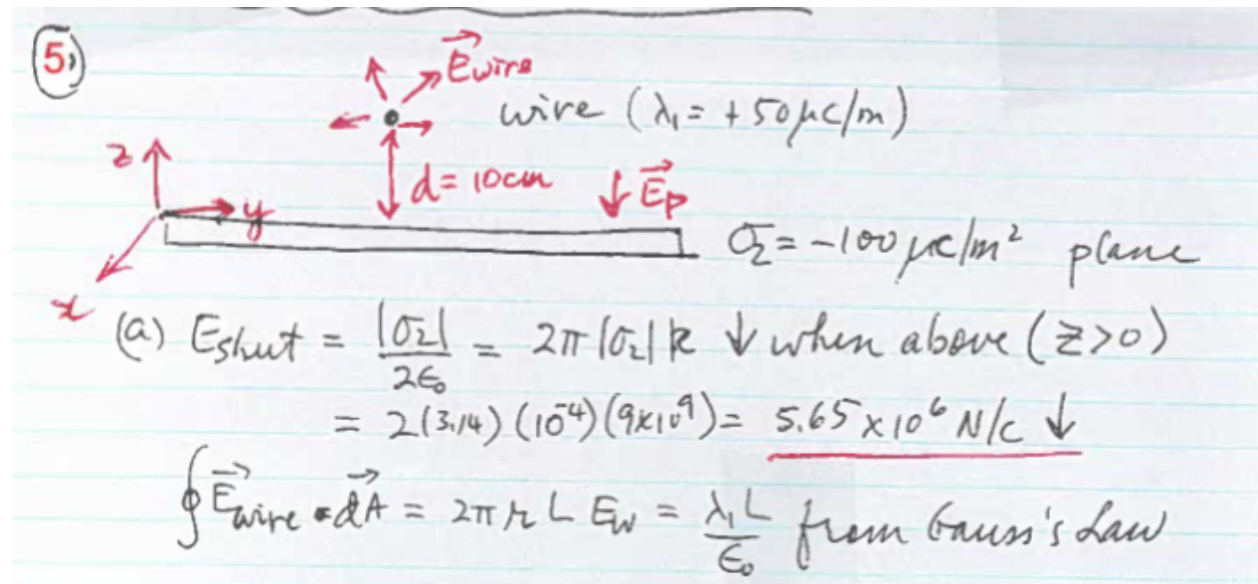 5)
E⃗wire
wire (λ₁ = +50 μc/m)
z
d = 10cm
↓ E⃗p
y
σ₂ = -100 μc/m² plane
x
(a) Esheet = |σ₂|/2ϵ₀ = 2π|σ₂|k ↓ when above (z>0)
= 2(3.14)(10⁻⁴)(9x10⁹) = 5.65 x 10⁶ N/c ↓
∮E⃗wire • dA⃗ = 2πrL Ew = λ₁L/ϵ₀ from Gauss's Law